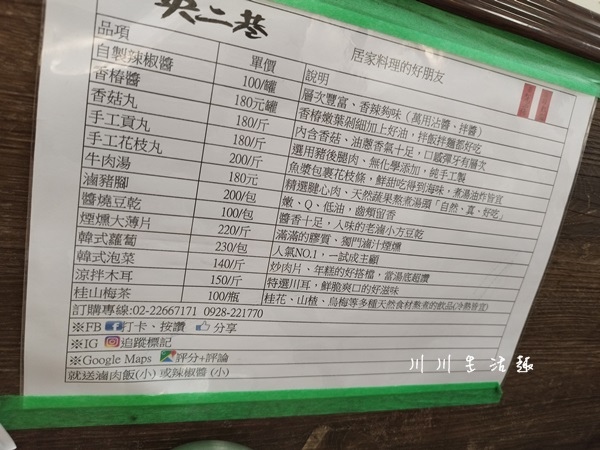 央二巷
居家料理的好朋友
品項 單價 說明
自製辣椒醬 100/罐 層次豐富、香辣夠味(萬用沾醬、拌醬)
香椿醬 180元罐 香椿嫩葉剁細加上好油，拌飯拌麵都好吃
香菇丸 180/斤 內含香菇、油蔥香氣十足，口感彈牙有層次
手工貢丸 180/斤 選用豬後腿肉、無化學添加，純手工製
手工花枝丸 200/斤 魚漿包裹花枝條，鮮甜吃得到海味，煮湯油炸皆宜
牛肉湯 180元 精選腱心肉、天然蔬果熬煮湯頭「自然、真、好吃」
滷豬腳 200/包 嫩、Q、低油，齒頰留香
醬燒豆乾 100/包 醬香十足，人味的老滷小方豆乾
煙燻大薄片 220/斤 滿滿的膠質、獨門滷汁煙燻
韓式蘿蔔 230/包 人氣NO.1，一試成主顧
韓式泡菜 140/斤 炒肉片、年糕的好搭檔，當湯底超讚
涼拌木耳 150/斤 特選川耳，鮮脆爽口的好滋味
桂山梅茶 100/瓶 桂花、山楂、烏梅等多種天然食材熬煮的飲品(冷熱皆宜)
訂購專線:02-22667171 0928-221770
※FB 打卡、按讚 分享
※IG 追蹤標記
※Google Maps 評分+評論
就送滷肉飯(小) 或辣椒醬 (小)
川川生活趣